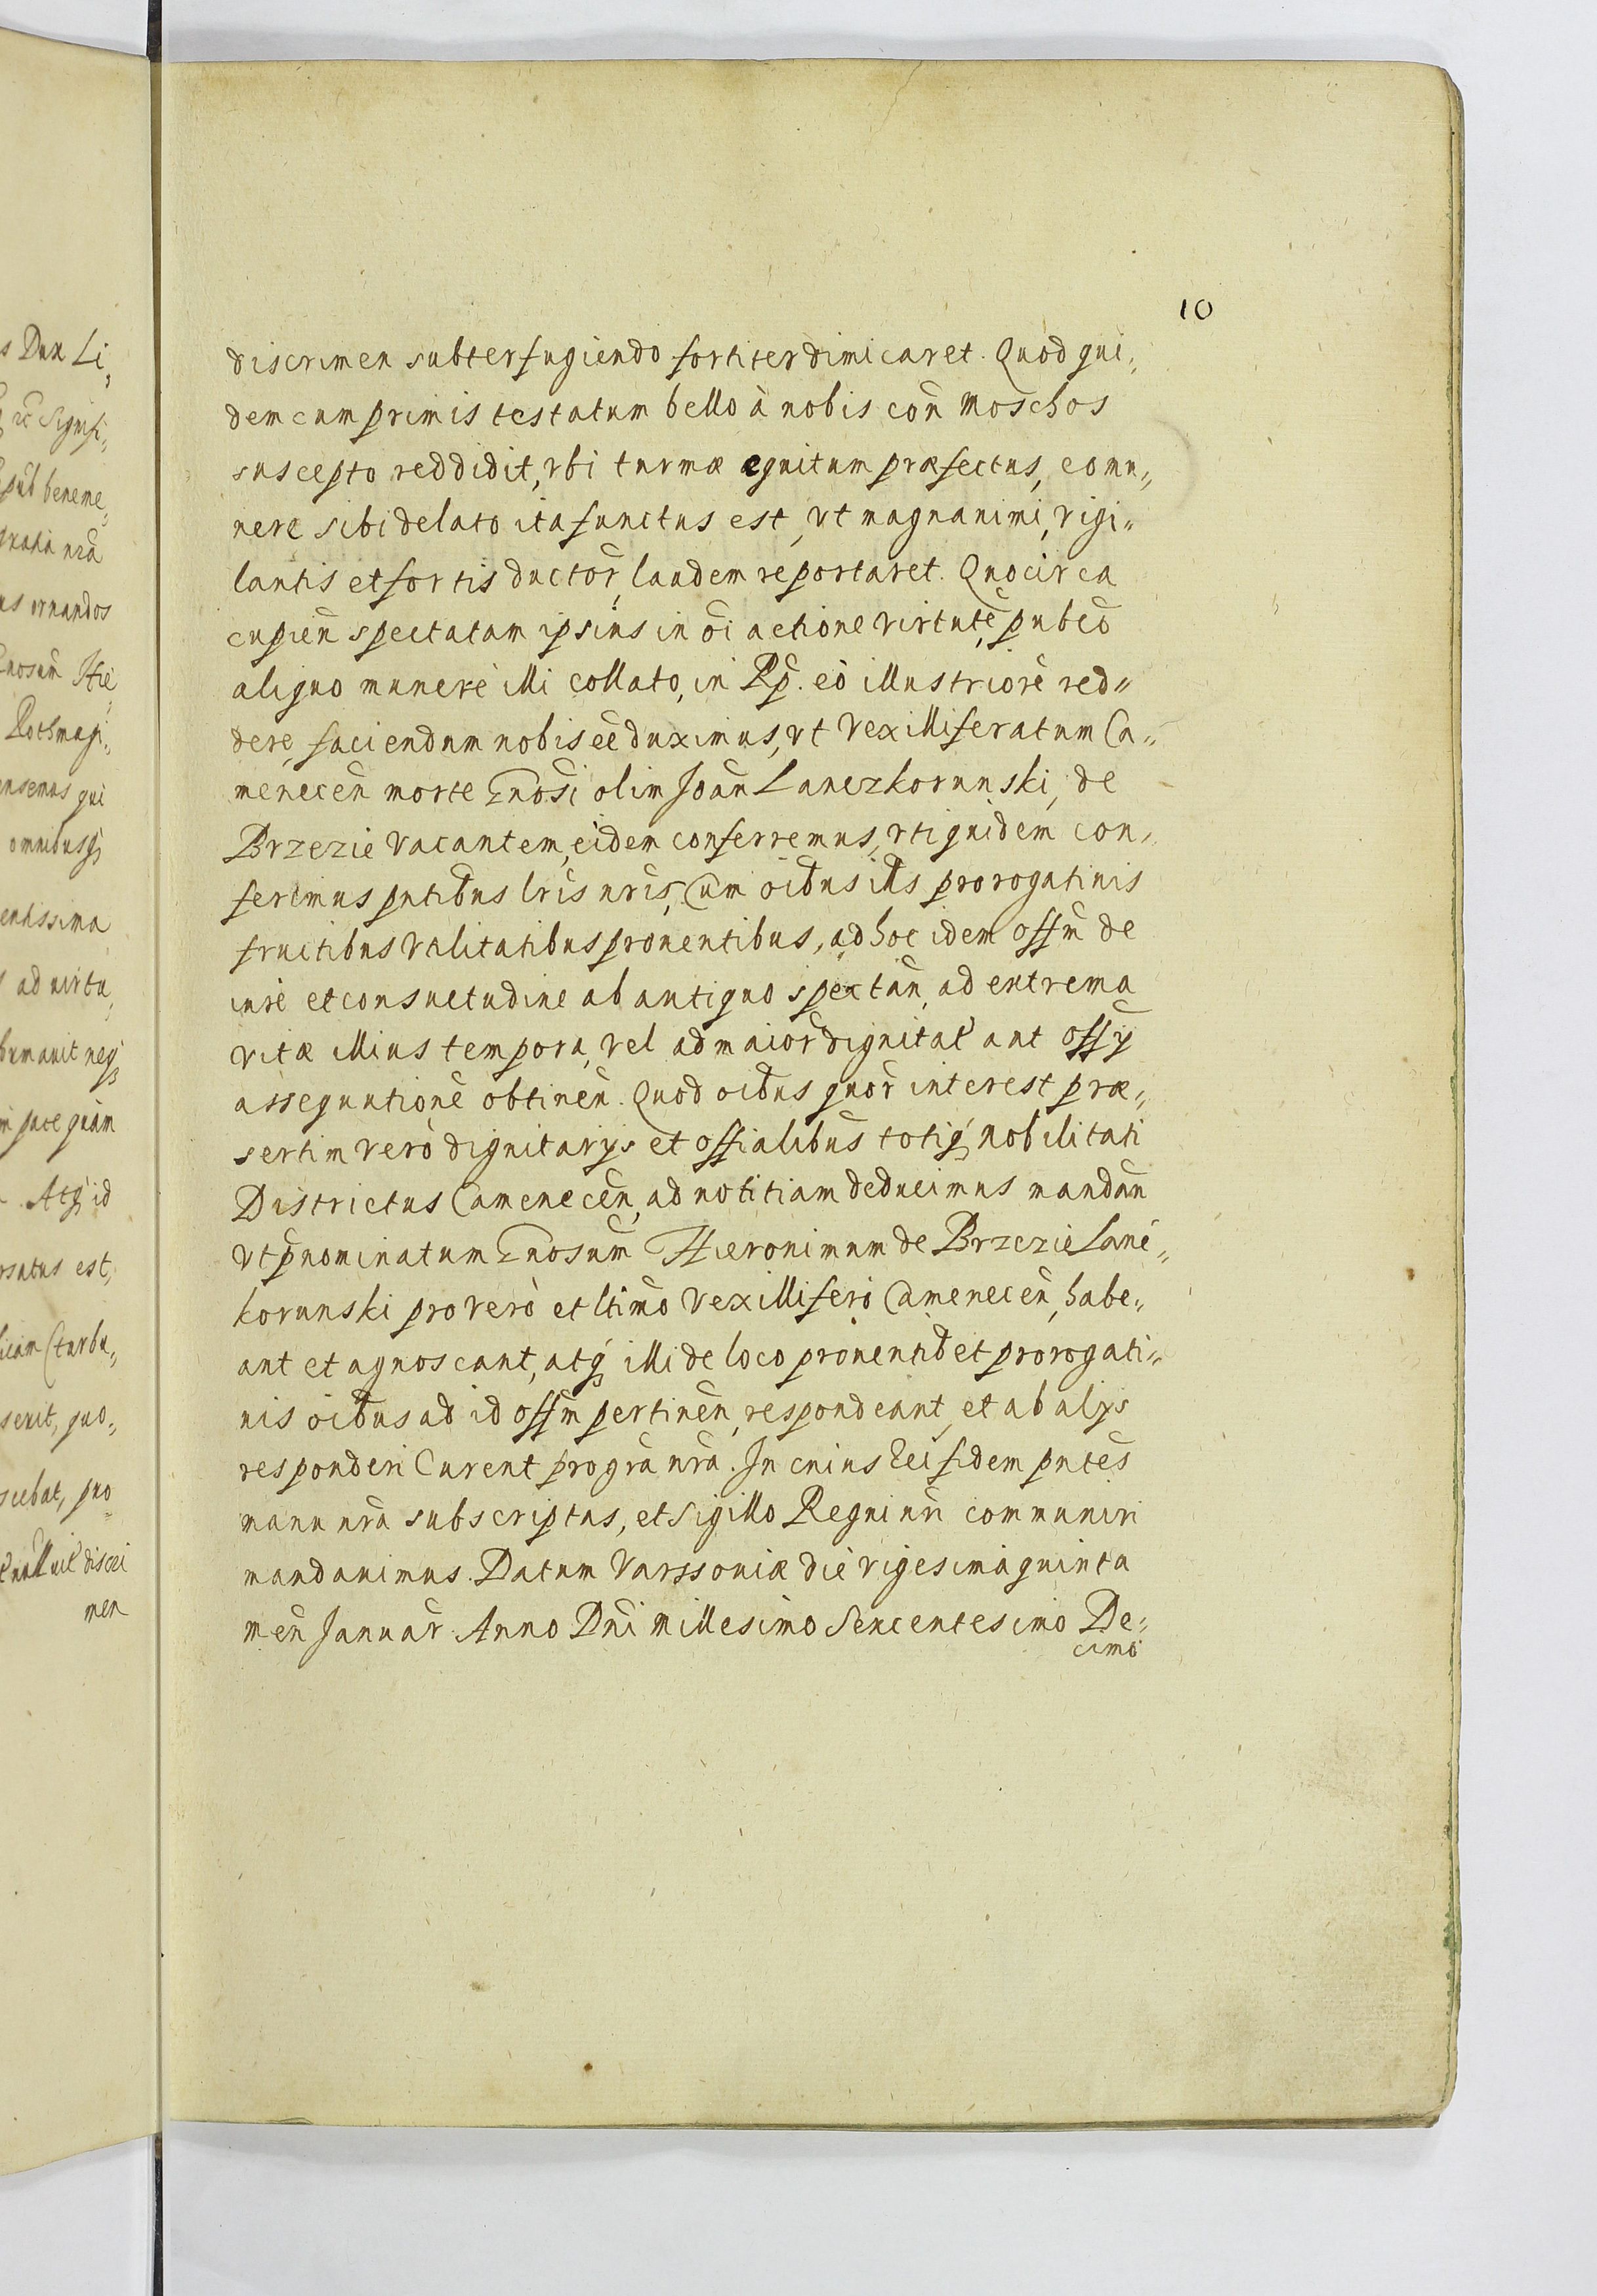 10
discrimen subterfugiendo fortiter dimicaret. Quod qui„
dem cum primis testatum bello à nobis con̄ Moschos
suscepto reddidit, vbi turmæ equitum præfectus, eo mu„
nere sibi delato ita functus est, vt magnanimi, vigi„
lantis et fortis ductor̄, laudem reportaret. Quocirca
cupien̄ spectatam ipsius in o̅i actione virtutē, pub̄co
aliquo munere illi collato, in Rp̄. eò illustriorē red„
dere, faciendum nobis ēē duximus, vt Vexilliferatum Ca„
menecen̄ morte Gnōsi olim Joān Lanczkorunski, de
Brzezie vacantem, eidem conferremus, vti quidem con„
ferimus pn̄tibus lr̄is nr̄is, Cum oībus illis prorogatiuis
fructibus vtilitatibus prouentibus, ad hoc idem offm̄ de
iure et consuetudine ab antiquo spectān, ad extrema
vitæ illius tempora, vel ad maior̄ dignitat̄ aut offy
assequutionē obtinen̄. Quod oībus quor̄ interest præ„
sertim verò dignitarijs et offialibus totiq́ꝫ nobilitati
Districtus Camenecen̄, ad notitiam deducimus mandān
vt p̄nominatum Gnosum̄ Hieronimum de Brzezie Lanc„
korunski pro vero et ltīmo Vexillifero Camenecen̄, habe„
ant et agnoscant, atq́ꝫ illi de loco prouentib̄ et prorogati„
uis oībus ad id offm̄ pertinen̄, respondeant, et ab alijs
responderi Curent pro grā nr̄a. In cuius rei fidem pn̄tes
manu nr̄a subscriptas, et Sigillo Regni nr̄i communiri
mandauimus. Datum Varssouiæ die vigesima quinta
men̄ Januar̄ Anno Dn̄i Millesimo Sexcentesimo De„
cimo